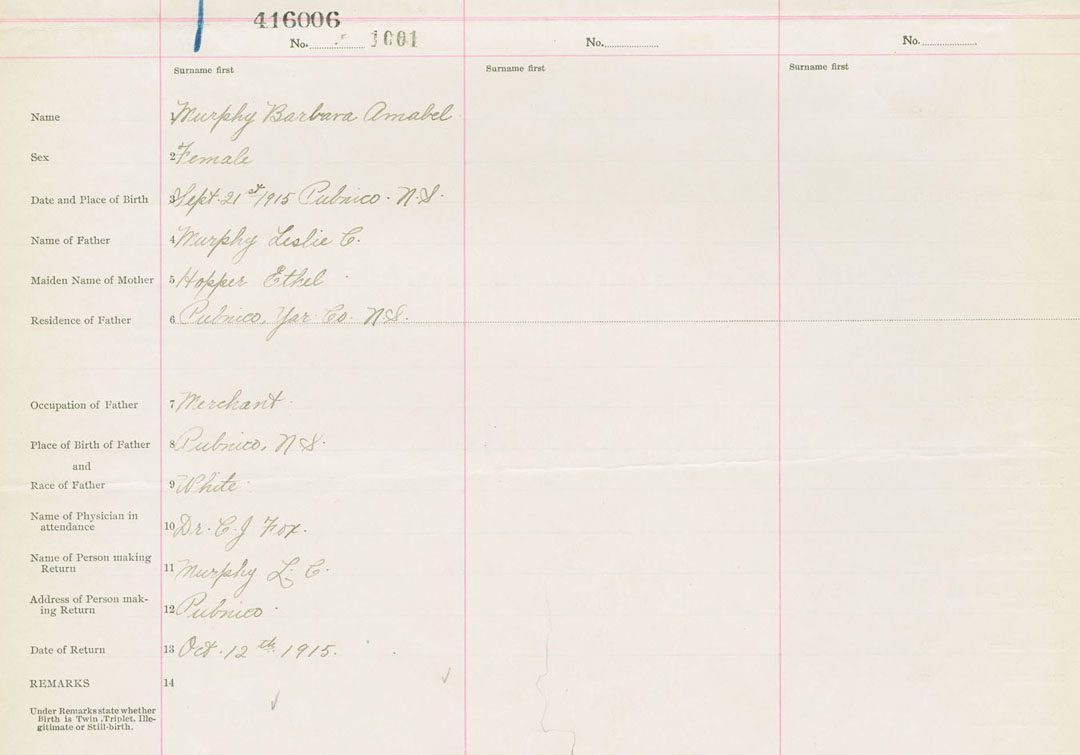 416006
No. 1601 No. No.
Surname first Surname first Surname first
Name 1 Murphy Barbara Amabel
Sex 2 Female
Date and Place of Birth 3 Sept. 21st/1915 Pubnico. N.S.
Name of Father 4 Murphy Leslie C.
Maiden Name of Mother 5 Hopper Ethel
Residence of Father 6 Pubnico, Yar. Co. N.S.
Occupation of Father 7 Merchant
Place of Birth of Father 8 Pubnico, N S.
and
Race of Father 9 White
Name of Physician in
attendance 10 Dr. C.J Fox.
Name of Person making
Return 11 Murphy L. C.
Address of Person mak-
ing Return 12 Pubnico
Date of Return 13 Oct. 12th 1915.
REMARKS 14
Under Remarks state whether
Birth is Twin, Triplet, Ille-
gitimate or Still-birth.